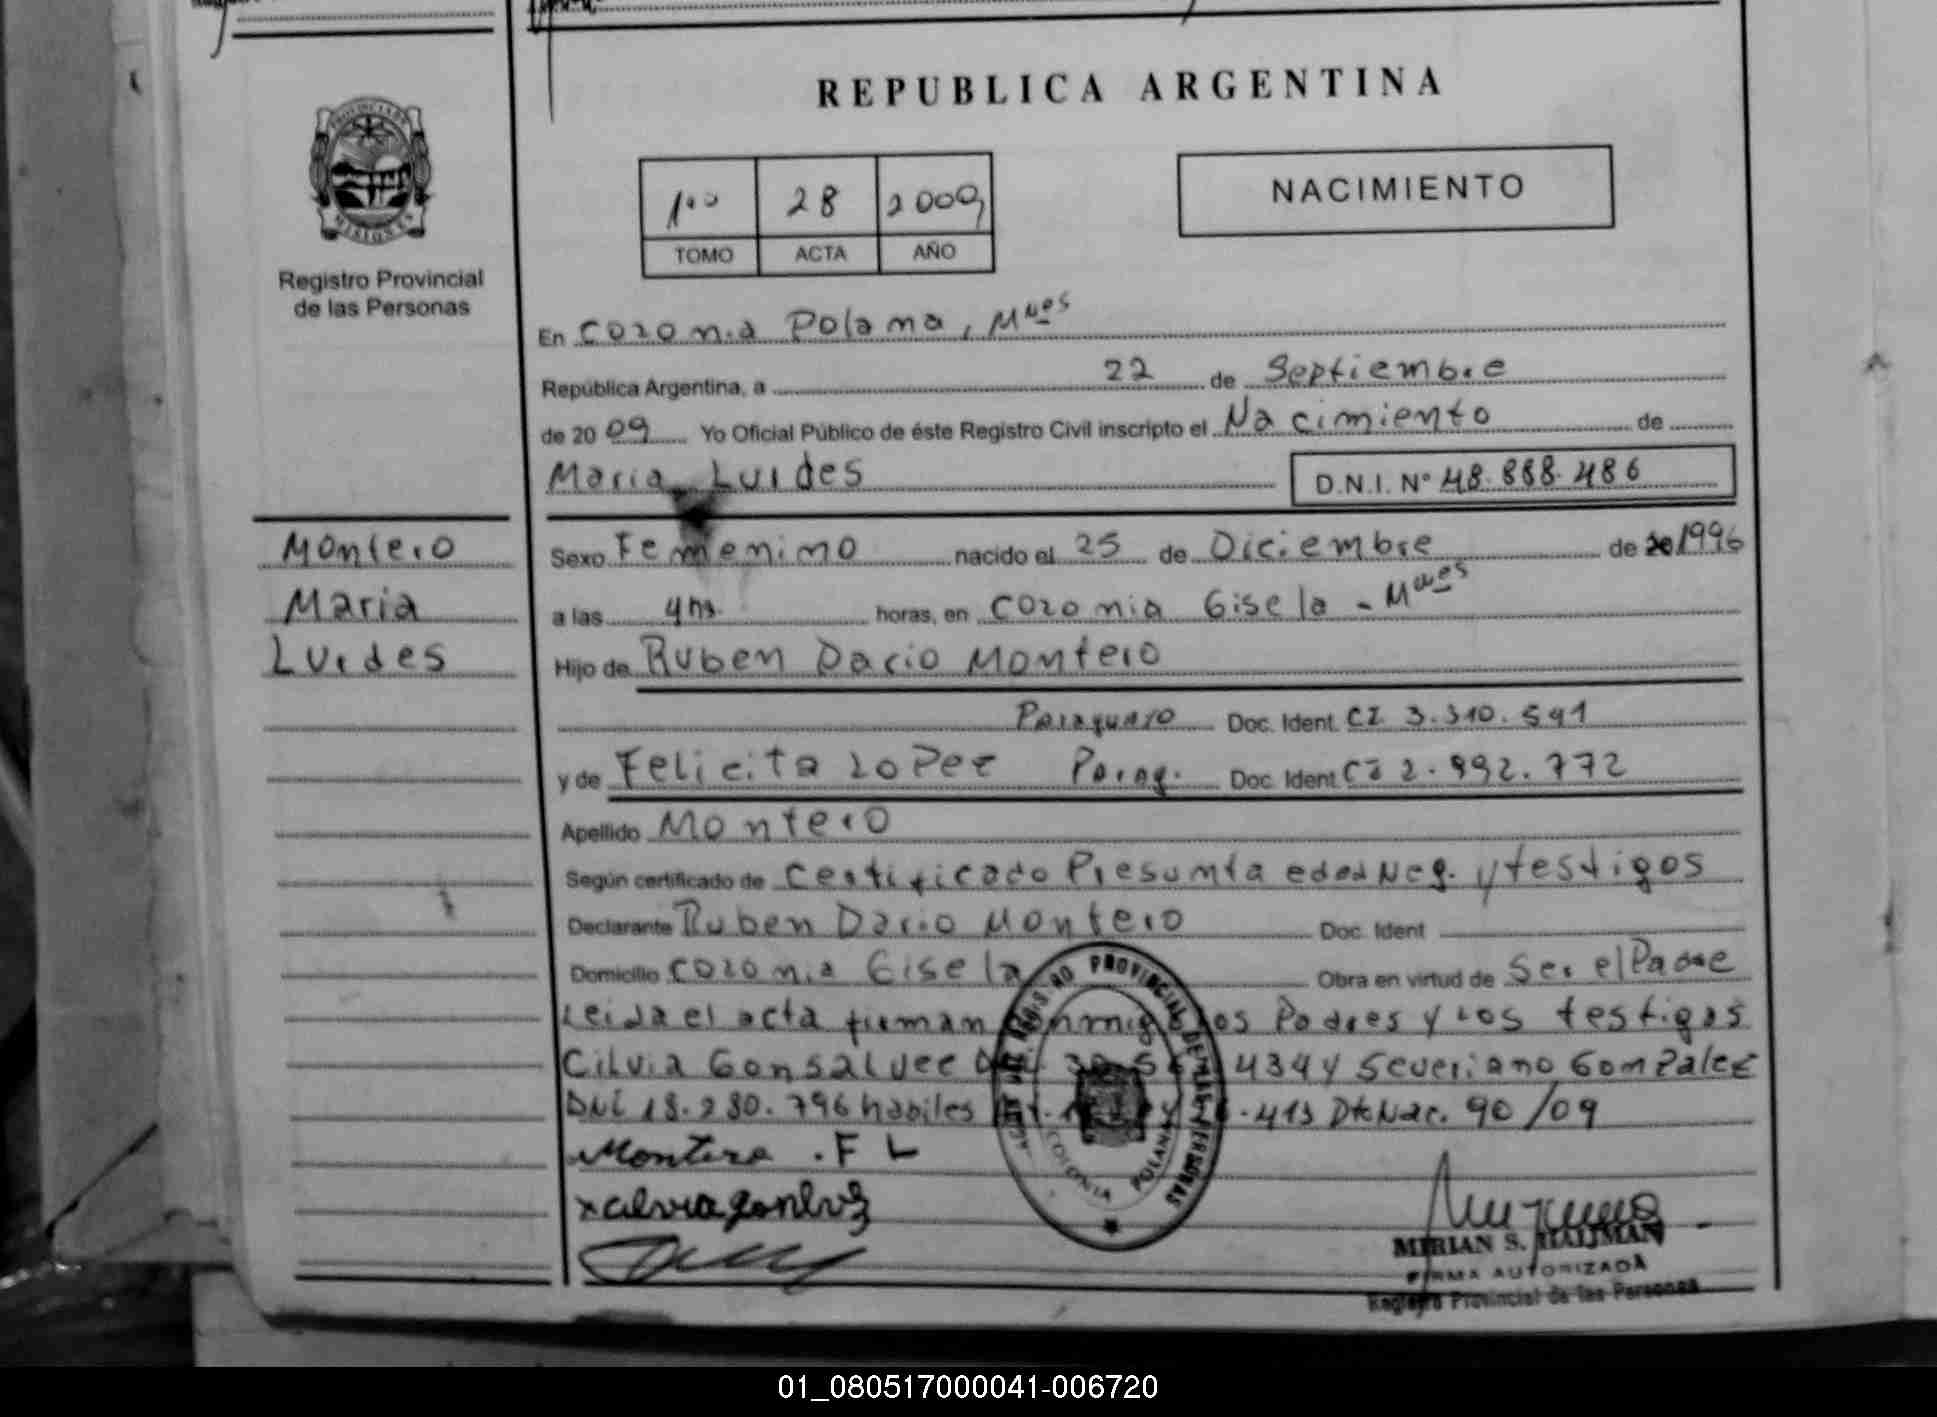 REPUBLICA ARGENTINA
PROVINCIA DE
MISIONES
Registro Provincial
de las Personas
1ro 28 2009
TOMO ACTA AÑO
NACIMIENTO
En Colonia Polana, Mnes
República Argentina, a 22 de Septiembre
de 2009 Yo Oficial Público de éste Registro Civil inscripto el Nacimiento de
Maria Lurdes D.N.I. Nº 48.888.486
Montero
Maria
Lurdes
Sexo Femenino nacido el 25 de Diciembre de 20 1996
a las 4hs. horas, en Colonia Gisela - Mnes
Hijo de Ruben Dario Montero
Paraguayo Doc. Ident. CI 3.310.591
y de Felicita Lopez Parag. Doc. Ident CI 2.992.772
Apellido Montero
Según certificado de Certificado Presunta edad Neg. y testigos
Declarante Ruben Dario Montero Doc. Ident
Domicilio Colonia Gisela Obra en virtud de Ser el Padre
Leida el acta firman conmigo los Padres y los testigos
Cilvia Gonsalvez 434 y Severiano Gonzalez
DNI 18.280.796 habiles .413 Dto Nac. 90/09
Montero . F L
x cilvia gonlvz
REGISTRO PROVINCIAL DE LAS PERSONAS
COLONIA POLANA
MIRIAN S. HAIJMAN
FIRMA AUTORIZADA
Registro Provincial de las Personas
01_080517000041-006720